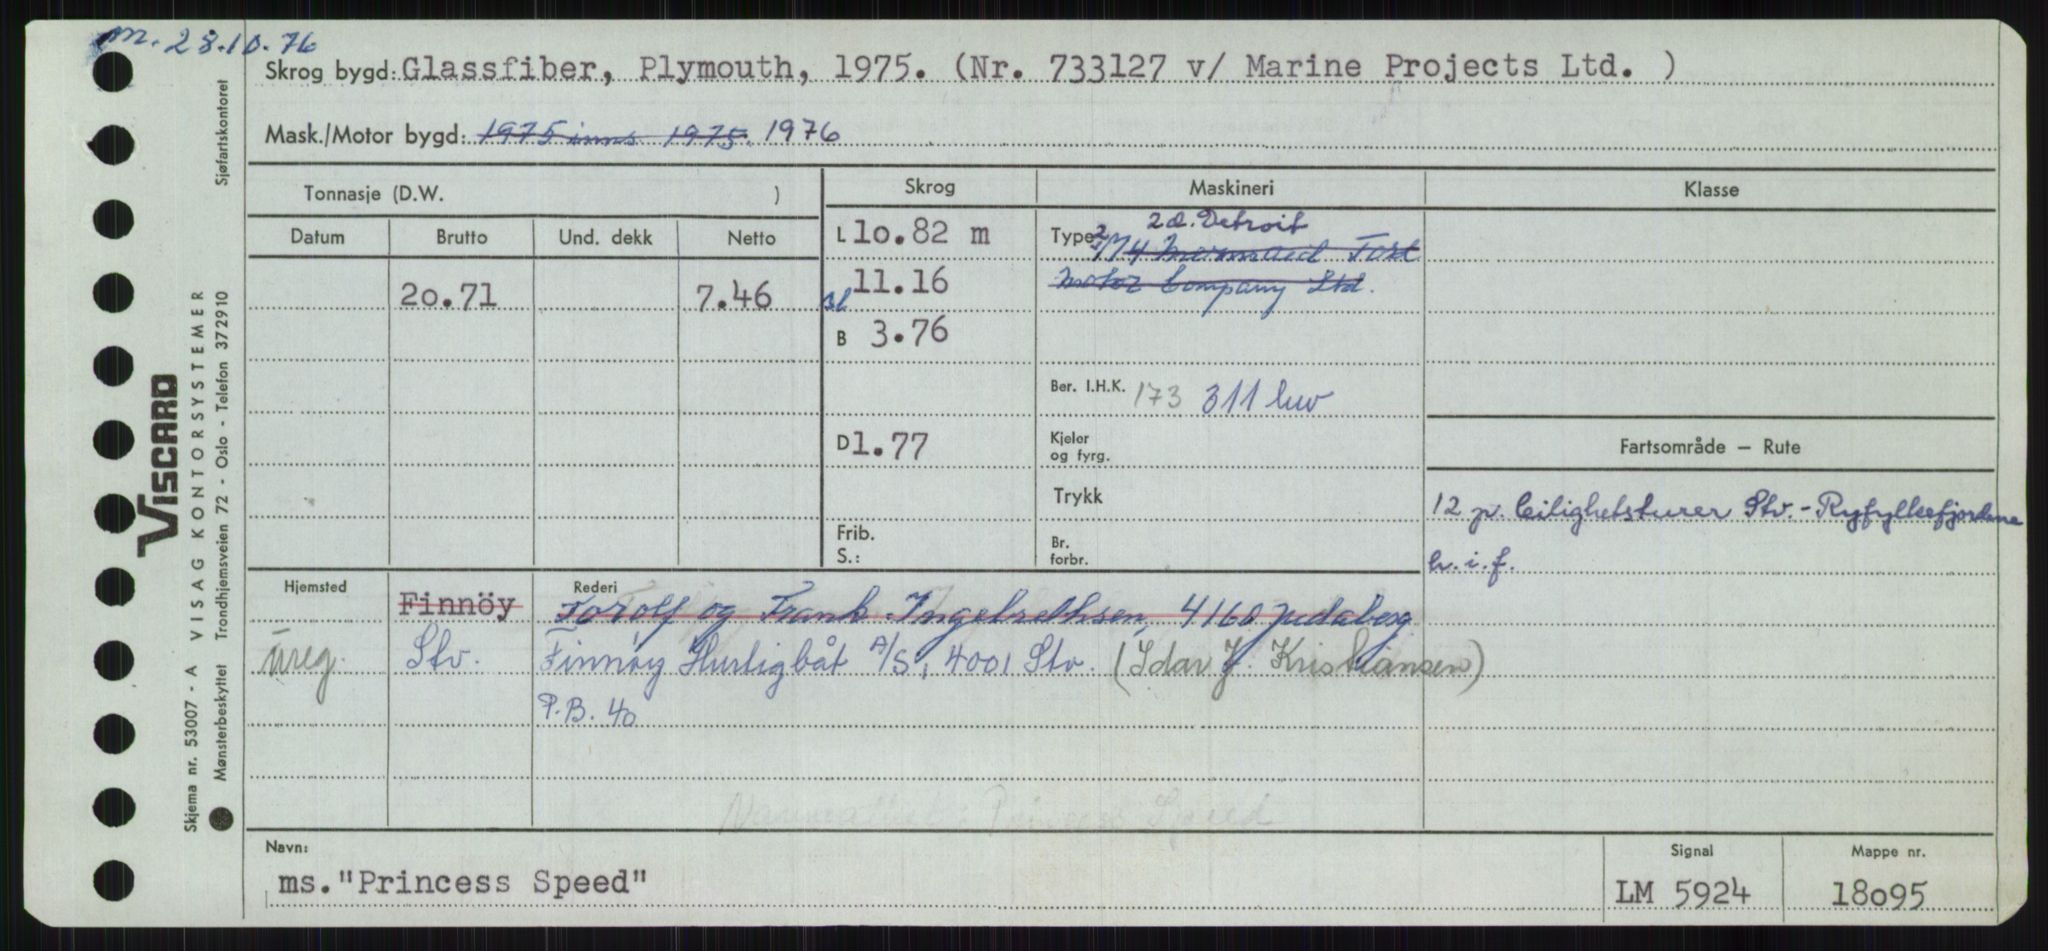 m. 28.10.76
Skrog bygd: Glassfiber, Plymouth, 1975. (Nr. 733127 v/ Marine Projects Ltd. )
Mask./Motor bygd: 1975 inns 1975. 1976
Tonnasje (D.W. )
Skrog
Maskineri
Klasse
Datum Brutto Und. dekk Netto
20.71 7.46
L 10.82 m
11.16
B 3.76
D 1.77
Frib.
S.:
2 d. Detroit
Type 2
Motor Company Ltd.
Ber. I.H.K. 173 311 kw
Kjeler
og fyrg.
Trykk
Br.
forbr.
Fartsområde — Rute
12 p. leilighetsturer Stv.-Ryfylkefjordene
h.i.f.
Hjemsted Finnöy
Rederi
Torolf og Frank Ingebrethsen, 4160 Judaberg
ureg. Stv. Finnøy Hurtigbåt A/S, 4001 Stv. (Idar J. Kristiansen)
P.B. 40
Princess Speed
Navn:
ms."Princess Speed"
Signal
LM 5924
Mappe nr.
18095
VISCARD
Skjema nr. 53007 - A VISAG KONTORSYSTEMER
Mønsterbeskyttet Trondhjemsveien 72 - Oslo - Telefon 372910 Sjøfartskontoret